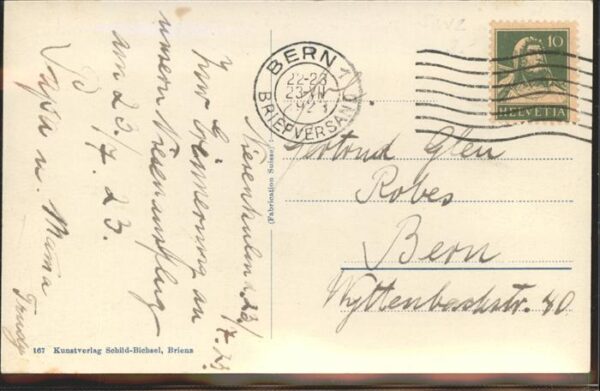 Niesenkulm d. 23/7. 23.
Zur Erinnerung an
unsern Niesenausflug
am 23./7. 23.
Papa u. Mama
Trudy
BERN 1
22-23
23.VII
1923
BRIEFVERSAND
10
HELVETIA
Gertrud Glen
Robes
Bern
Wyttenbachstr. 40
(Fabrication Suisse)
167 Kunstverlag Schild-Bichsel, Brienz